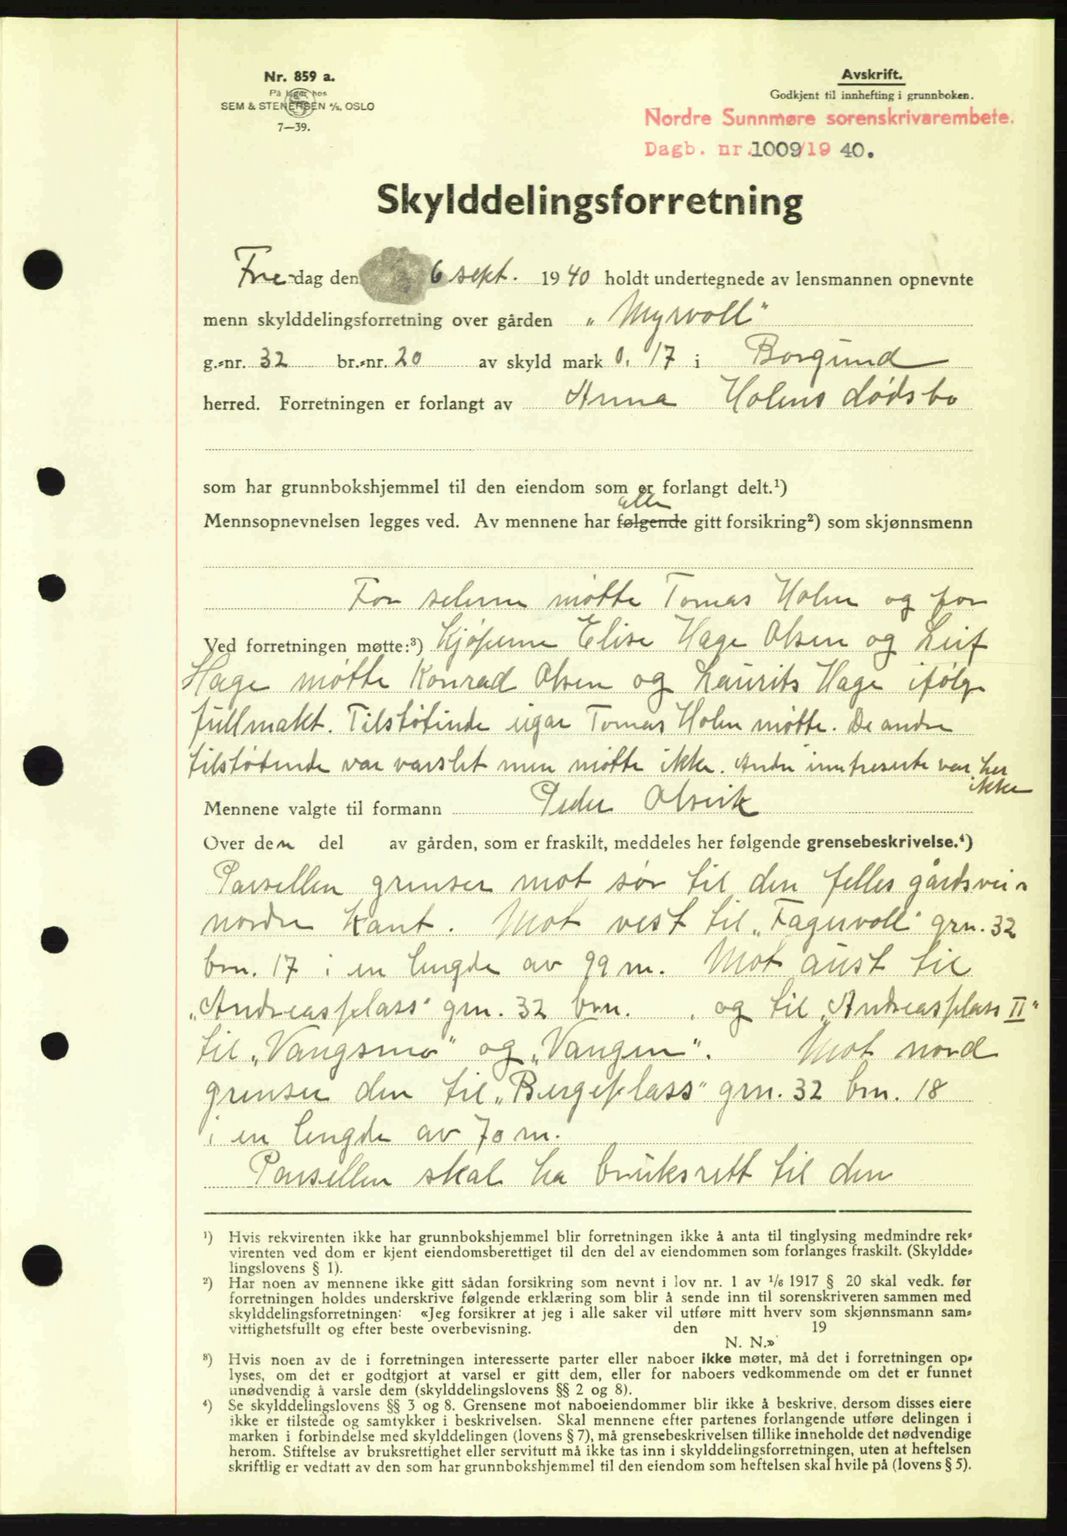 Nr. 859 a.
På lager hos
SEM & STENERSEN A/S, OSLO
7—39.
Avskrift.
Godkjent til innhefting i grunnboken.
Nordre Sunnmøre sorenskrivarembete.
Dagb. nr. 1009/19 40.
Skylddelingsforretning
Fre-dag den 6 sept. 1940 holdt undertegnede av lensmannen opnevnte
menn skylddelingsforretning over gården „Myrvoll"
g.-nr. 32 br.-nr. 20 av skyld mark 0,17 i Borgund
herred. Forretningen er forlangt av Anna Holens dødsbo
som har grunnbokshjemmel til den eiendom som er forlangt delt.¹)
alle
Mennsopnevnelsen legges ved. Av mennene har følgende gitt forsikring²) som skjønnsmenn
For selerne møtte Tomas Holen og for
Ved forretningen møtte:³) kjøperne Elise Hage Olsen og Leif
Hage møtte Konrad Olsen og Laurits Hage ifølge
fullmakt. Tilstøtende eigar Tomas Holen møtte. De andre
tilstøtende var varslet men møtte ikke. Andre interesserte var her
ikke
Mennene valgte til formann Peder Olsvik
Over den del av gården, som er fraskilt, meddeles her følgende grensebeskrivelse.⁴)
Parsellen grenser mot sør til den felles gårdsvei's
nordre kant. Mot vest til „Fagervoll" grn. 32
brn. 17 i en lengde av 99 m. Mot aust til
„Andreasplass" grn. 32 brn. , og til „Andreasplass II"
til „Vangsmo" og „Vangen". Mot nord
grenser den til „Bergeplass" grn. 32 brn. 18
i en lengde av 70 m.
Parsellen skal ha bruksrett til den
¹) Hvis rekvirenten ikke har grunnbokshjemmel blir forretningen ikke å anta til tinglysing medmindre rek-
virenten ved dom er kjent eiendomsberettiget til den del av eiendommen som forlanges fraskilt. (Skyldde-
lingslovens § 1).
²) Har noen av mennene ikke gitt sådan forsikring som nevnt i lov nr. 1 av 1/6 1917 § 20 skal vedk. før
forretningen holdes underskrive følgende erklæring som blir å sende inn til sorenskriveren sammen med
skylddelingsforretningen: «Jeg forsikrer at jeg i alle saker vil utføre mitt hverv som skjønnsmann sam-
vittighetsfullt og efter beste overbevisning. den 19
N. N.»
³) Hvis noen av de i forretningen interesserte parter eller naboer ikke møter, må det i forretningen op-
lyses, om det er godtgjort at varsel er gitt dem, eller for naboers vedkommende om det er funnet
unødvendig å varsle dem (skylddelingslovens §§ 2 og 8).
⁴) Se skylddelingslovens §§ 3 og 8. Grensene mot naboeiendommer blir ikke å beskrive, dersom disses eiere
ikke er tilstede og samtykker i beskrivelsen. Skal mennene efter partenes forlangende utføre delingen i
marken i forbindelse med skylddelingen (lovens § 7), må grensebeskrivelsen tillike inneholde det nødvendige
herom. Stiftelse av bruksrettighet eller servitutt må ikke tas inn i skylddelingsforretningen, uten at heftelsen
skriftlig er vedtatt av den som har grunnbokshjemmel til den eiendom som heftelsen skal hvile på (lovens § 5).